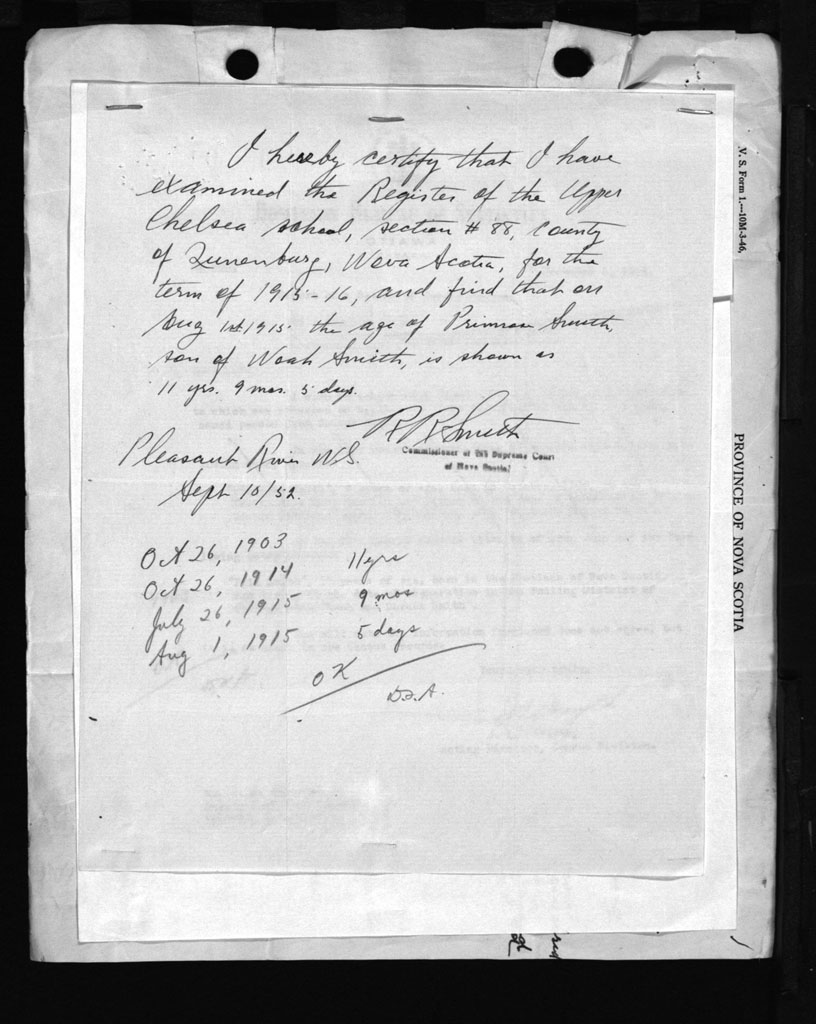 I hereby certify that I have
examined the Register of the Upper
Chelsea school, section # 88, County
of Lunenburg, Nova Scotia, for the
term of 1915-16, and find that on
Aug 1st 1915 the age of Primrose Smith,
son of Noah Smith, is shown as
11 yrs. 9 mos. 5 days.
R R Smith
Commissioner of the Supreme Court
of Nova Scotia
Pleasant River N.S.
Sept 10/52.
Oct 26, 1903
Oct 26, 1914 11 yrs
July 26, 1915 9 mos
Aug 1, 1915 5 days
OK
V. S. Form 1.—10M-3-46.
PROVINCE OF NOVA SCOTIA